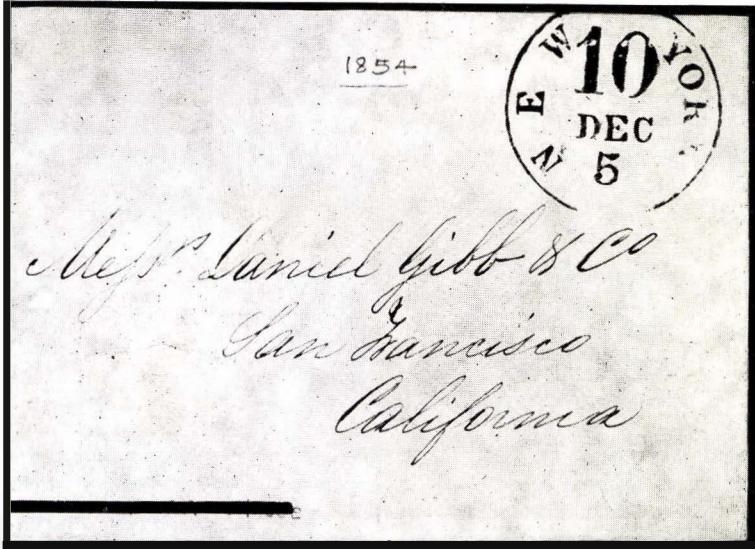 1854
NEW YORK
10
DEC
5
Messrs Daniel Gibb & Co
San Francisco
California